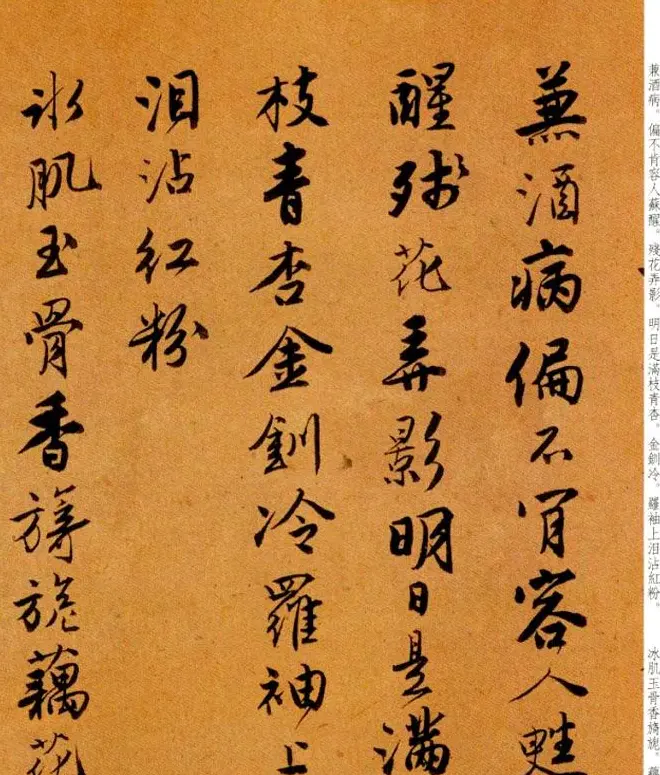 兼酒病偏不肯容人甦
醒殘花弄影明日是滿
枝青杏金釧冷羅袖上
泪沾紅粉
冰肌玉骨香旖旎藕花
兼酒病。偏不肯容人蘇醒。殘花弄影。明日是滿枝青杏。金釧冷。羅袖上泪沾紅粉。
冰肌玉骨香旖旎。藕